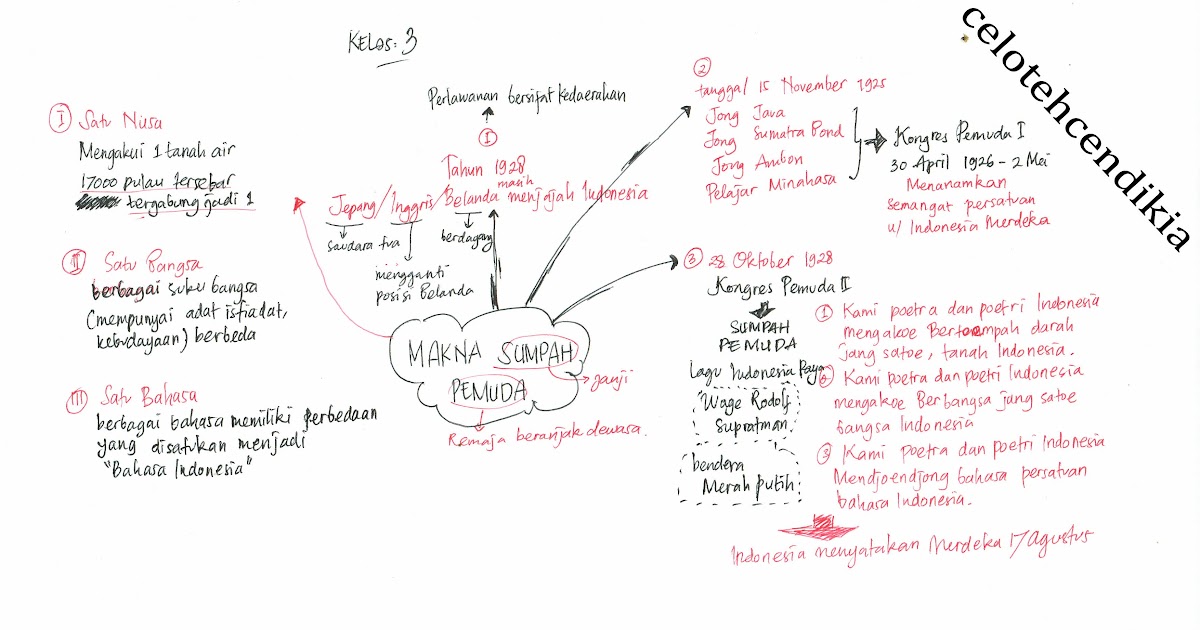 KELAS: 3
celotehcendikia
I Satu Nusa
Mengakui 1 tanah air
17000 pulau tersebar
tergabung jadi 1
II Satu Bangsa
berbagai suku bangsa
(mempunyai adat istiadat,
kebudayaan) berbeda
III Satu Bahasa
berbagai bahasa memiliki perbedaan
yang disatukan menjadi
"Bahasa Indonesia"
Perlawanan bersifat kedaerahan
1
Tahun 1928
masih
Jepang/Inggris/Belanda menjajah Indonesia
saudara tua
mengganti
posisi Belanda
berdagang
MAKNA SUMPAH
PEMUDA
janji
Remaja beranjak dewasa.
2
tanggal 15 November 1925
Jong Java
Jong Sumatra Pond
Jong Ambon
Pelajar Minahasa
Kongres Pemuda I
30 April 1926 - 2 Mei
Menanamkan
semangat persatuan
u/ Indonesia Merdeka
3 28 Oktober 1928
Kongres Pemuda II
SUMPAH
PEMUDA
Lagu Indonesia Raya
Wage Rodolf
Supratman.
bendera
Merah putih
1 Kami poetra dan poetri Indonesia
mengakoe Bertoempah darah
jang satoe, tanah Indonesia.
2 Kami poetra dan poetri Indonesia
mengakoe Berbangsa jang satoe
bangsa Indonesia
3 Kami poetra dan poetri Indonesia
Mendjoendjong bahasa persatuan
bahasa Indonesia.
Indonesia menyatakan Merdeka 17 Agustus